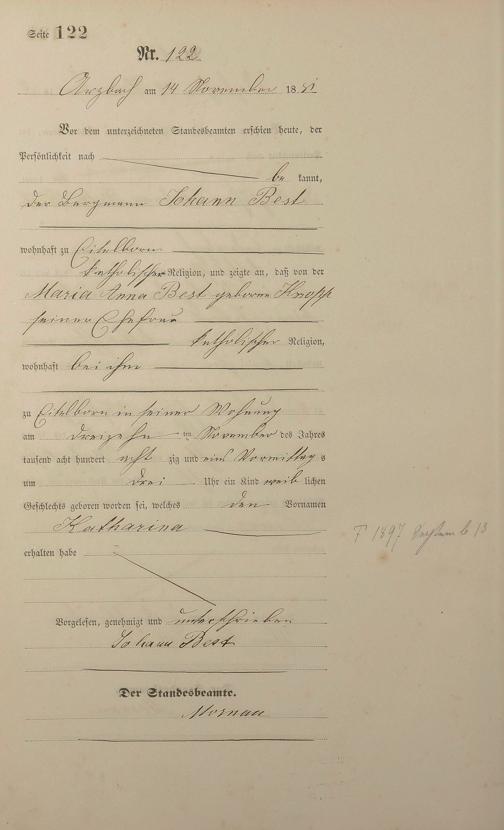 Seite 122
Nr. 122.
Arzbach am 14 November 1881.
Vor dem unterzeichneten Standesbeamten erschien heute, der
Persönlichkeit nach
be kannt,
der Bergmann Johann Best
wohnhaft zu Eitelborn
katholischer Religion, und zeigte an, daß von der
Maria Anna Best geborne Knopp
seiner Ehefrau
katholischer Religion,
wohnhaft bei ihm
zu Eitelborn in seiner Wohnung
am dreizehn ten November des Jahres
tausend acht hundert acht zig und eins Vormittag s
um drei Uhr ein Kind weib lichen
Geschlechts geboren worden sei, welches den Vornamen
Katharina
† 1897 13
erhalten habe
Vorgelesen, genehmigt und unterschrieben
Johann Best
Der Standesbeamte.